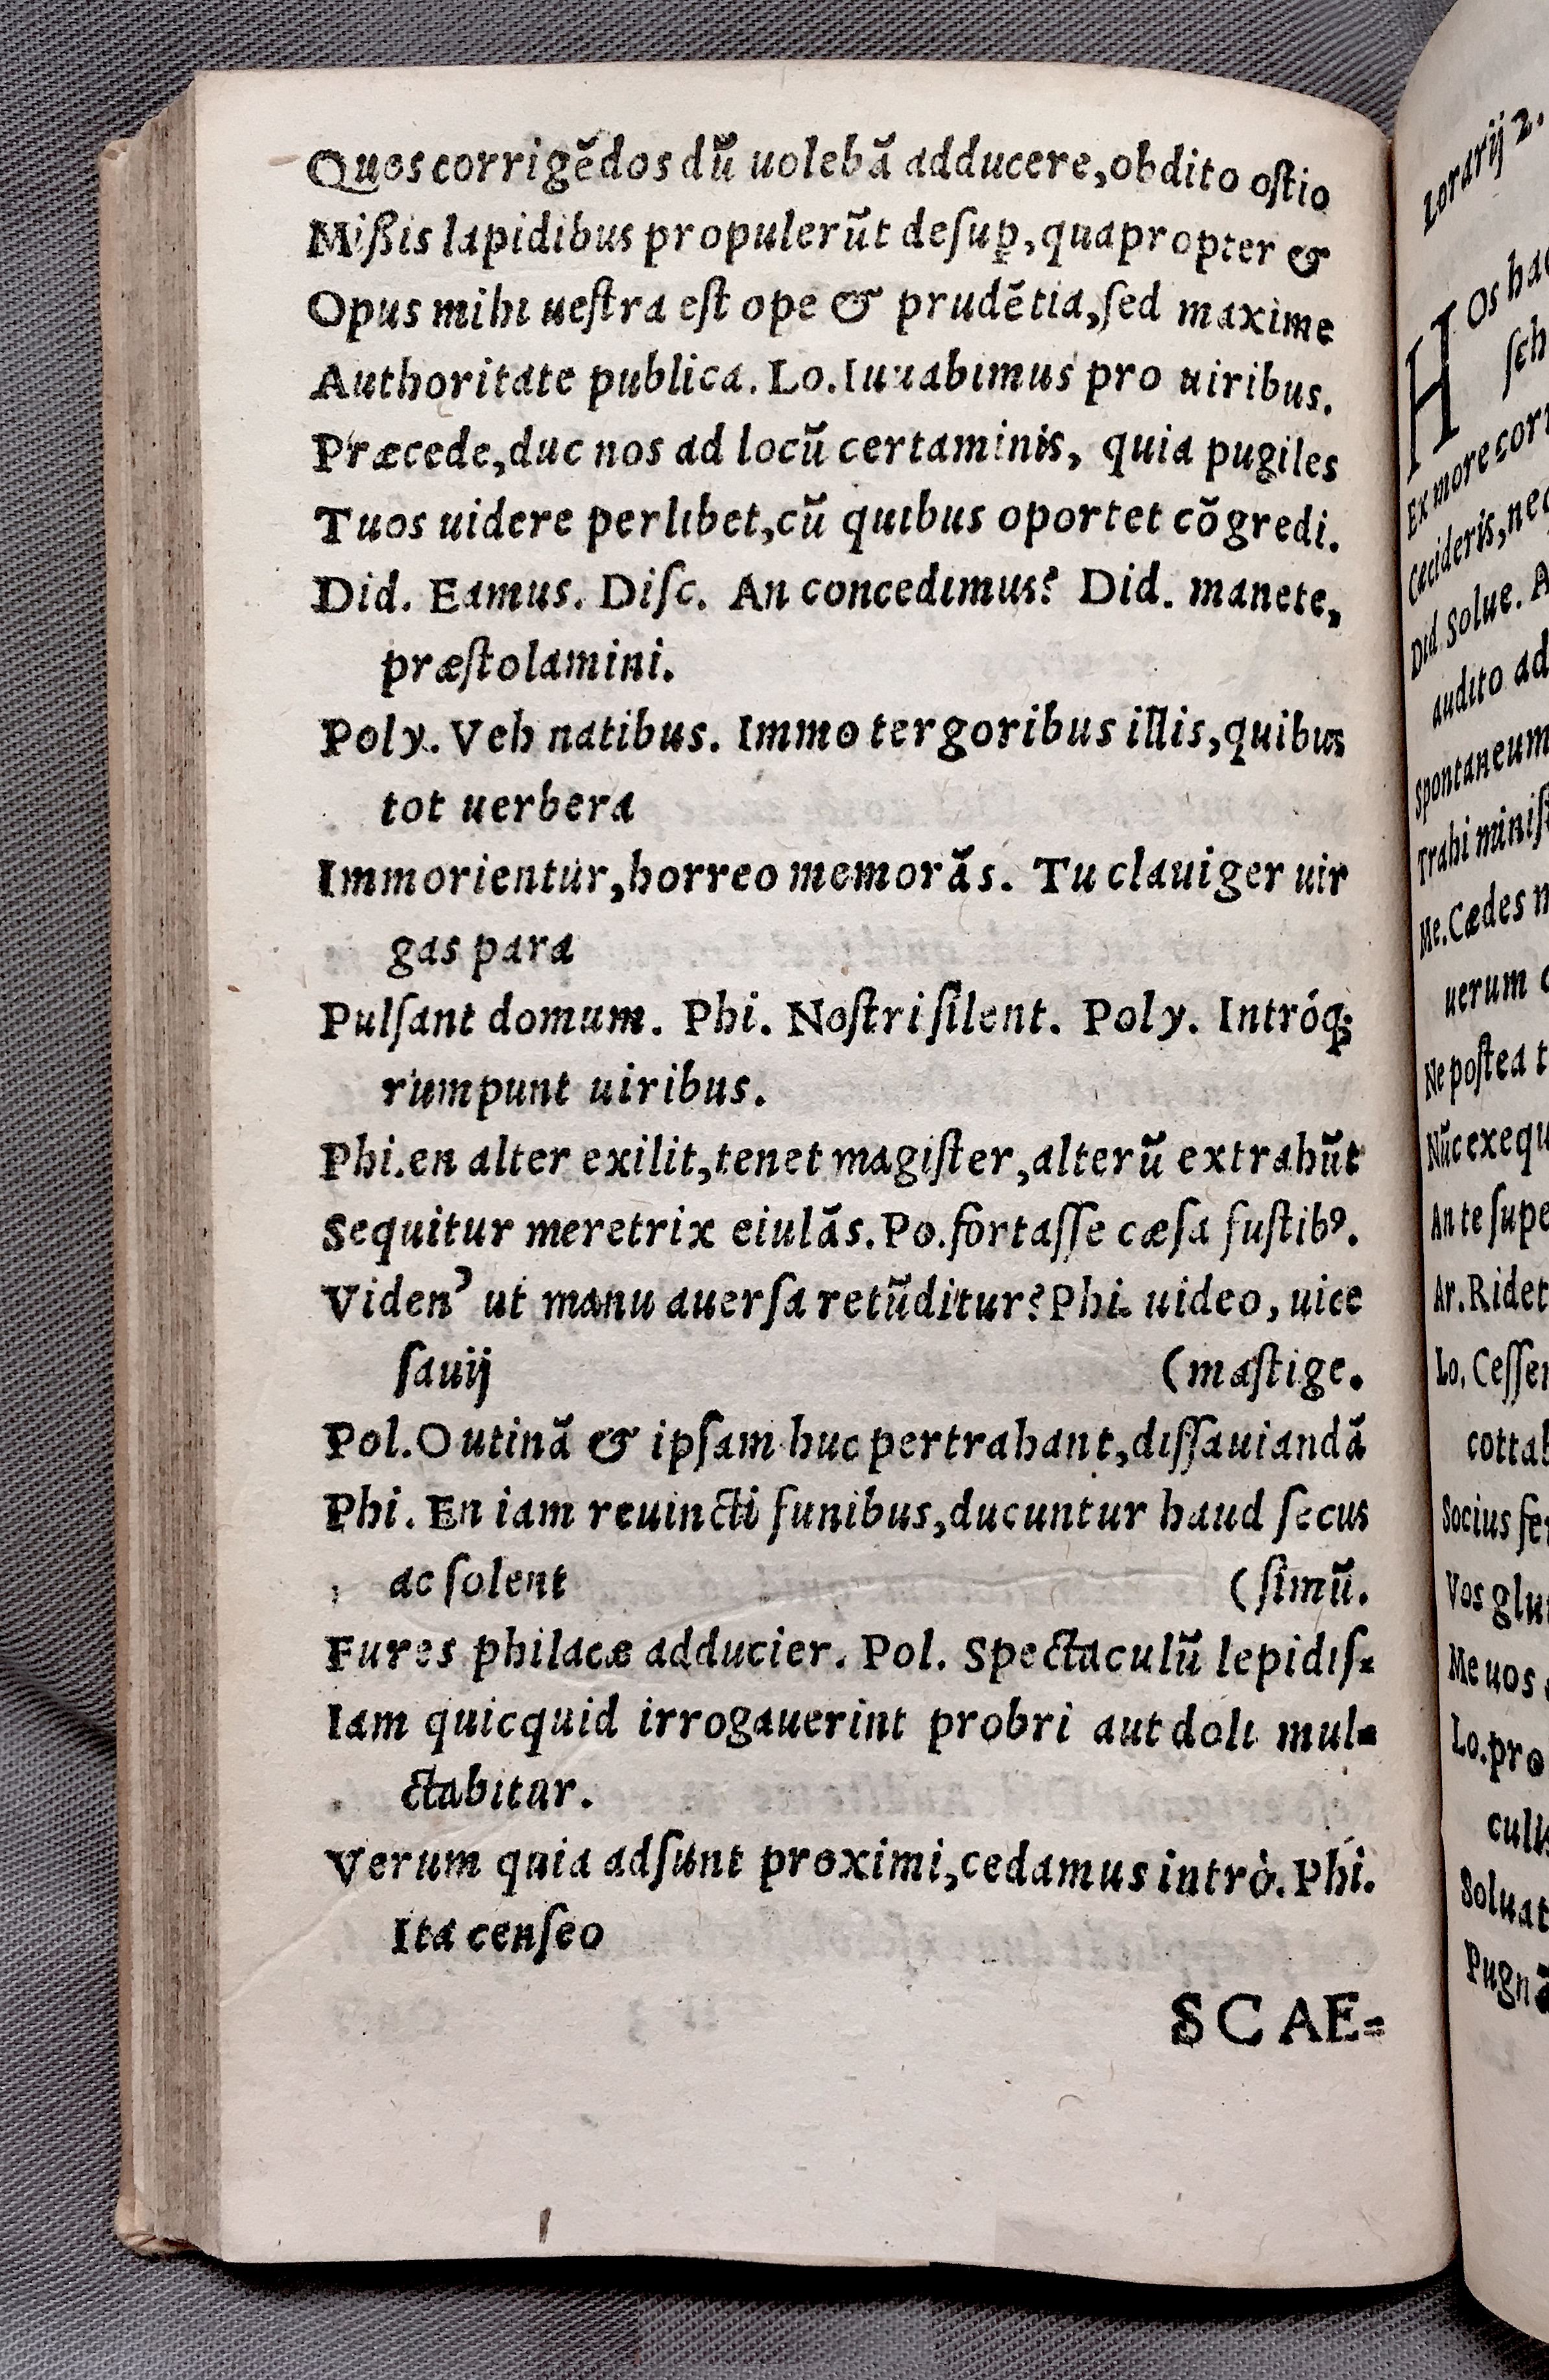 Quos corrigẽdos dũ uolebã adducere, obdito oſtio
Mißis lapidibus propulerũt deſuꝑ, quapropter &
Opus mihi ueſtra eſt ope & prudẽtia, ſed maxime
Authoritate publica. Lo. Iuuabimus pro uiribus.
Præcede, duc nos ad locũ certaminis, quia pugiles
Tuos uidere perlibet, cũ quibus oportet cõgredi.
Did. Eamus. Diſc. An concedimus? Did. manete,
præſtolamini.
Poly. Veh natibus. Immo tergoribus illis, quibus
tot uerbera
Immorientur, horreo memorãs. Tu clauiger uir
gas para
Pulſant domum. Phi. Noſtri ſilent. Poly. Intróq;
rumpunt uiribus.
Phi. en alter exilit, tenet magiſter, alterũ extrahũt
Sequitur meretrix eiulãs. Po. fortaſſe cæſa fuſtibꝰ.
Viden' ut manu auerſa retũditur? Phi. uideo, uice
ſauij (maſtige.
Pol. O utinã & ipſam huc pertrahant, diſſauiandã
Phi. En iam reuincti funibus, ducuntur haud ſecus
ac ſolent (ſimũ.
Fures philacæ adducier. Pol. Spectaculũ lepidiſ-
Iam quicquid irrogauerint probri aut doli mul-
ctabitur.
Verum quia adſunt proximi, cedamus intrò. Phi.
Ita cenſeo
SCAE-
Lorarij 2.
HOs ha
ſch
Ex more cor
Cecideris, nec
Did. Solue. A
audito ad
Spontaneum
Trahi miniſ
Me. Cædes
uerum
Ne poſtea t
Nũc exequ
An te ſupe
Ar. Ridet
Lo. Ceſſe
cotta
Socius fe
Vos glu
Me uos
Lo. pro
culi
Soluat
Pugnã